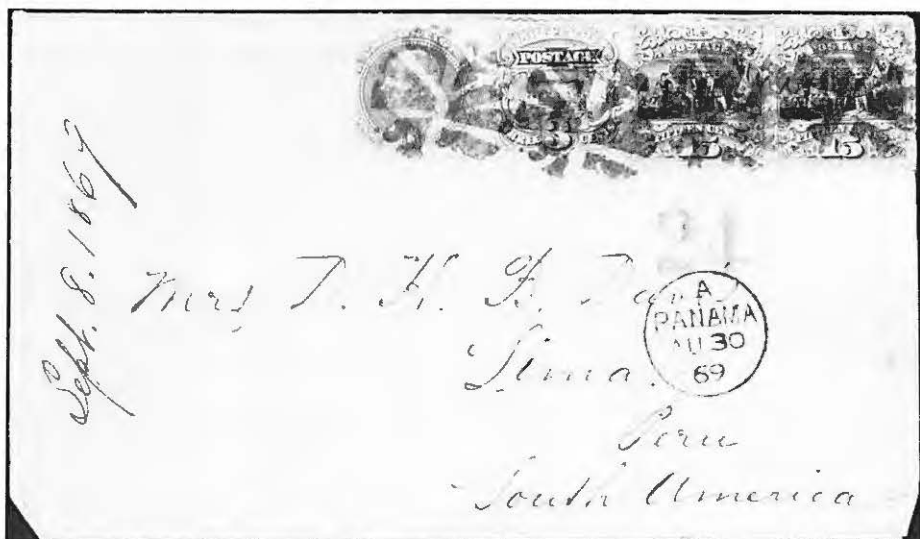 POSTAGE
POSTAGE
POSTAGE
15
15
Sept. 8. 1869
Mrs T. H.
A
PANAMA
AU 30
69
Lima.
Peru
South America